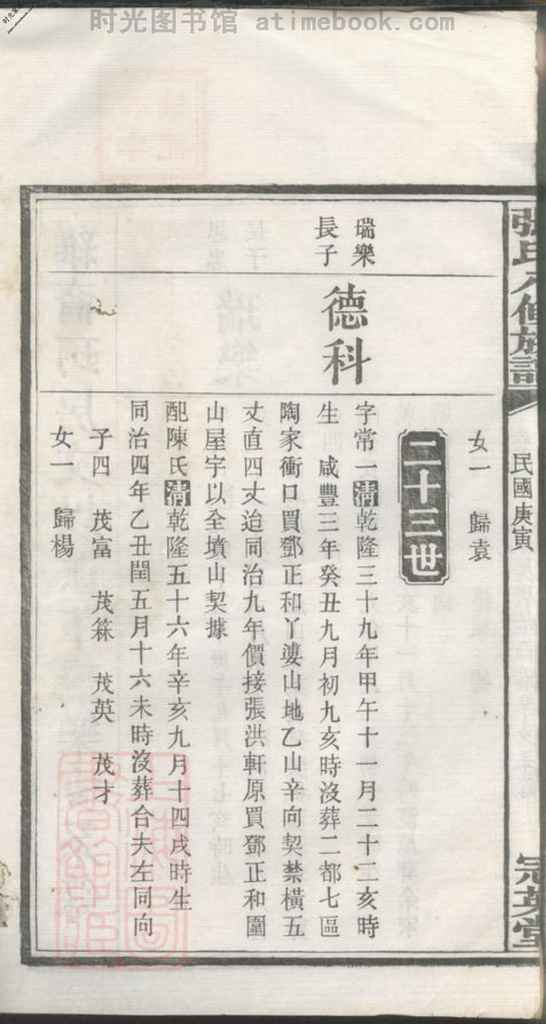 时光图书馆 atimebook.com
張氏八修族譜
民國庚寅
冠英堂
女一 歸袁
二十三世
瑞樂
長子
德科
字常一清乾隆三十九年甲午十一月二十二亥時
生 咸豐三年癸丑九月初九亥時沒葬二都七區
陶家衝口買鄧正和丫婆山地乙山辛向契禁橫五
丈直四丈迨同治九年價接張洪軒原買鄧正和圍
山屋宇以全墳山契據
配陳氏清乾隆五十六年辛亥九月十四戌時生
同治四年乙丑閏五月十六未時沒葬合夫左同向
子四 茂富 茂箖 茂英 茂才
女一 歸楊